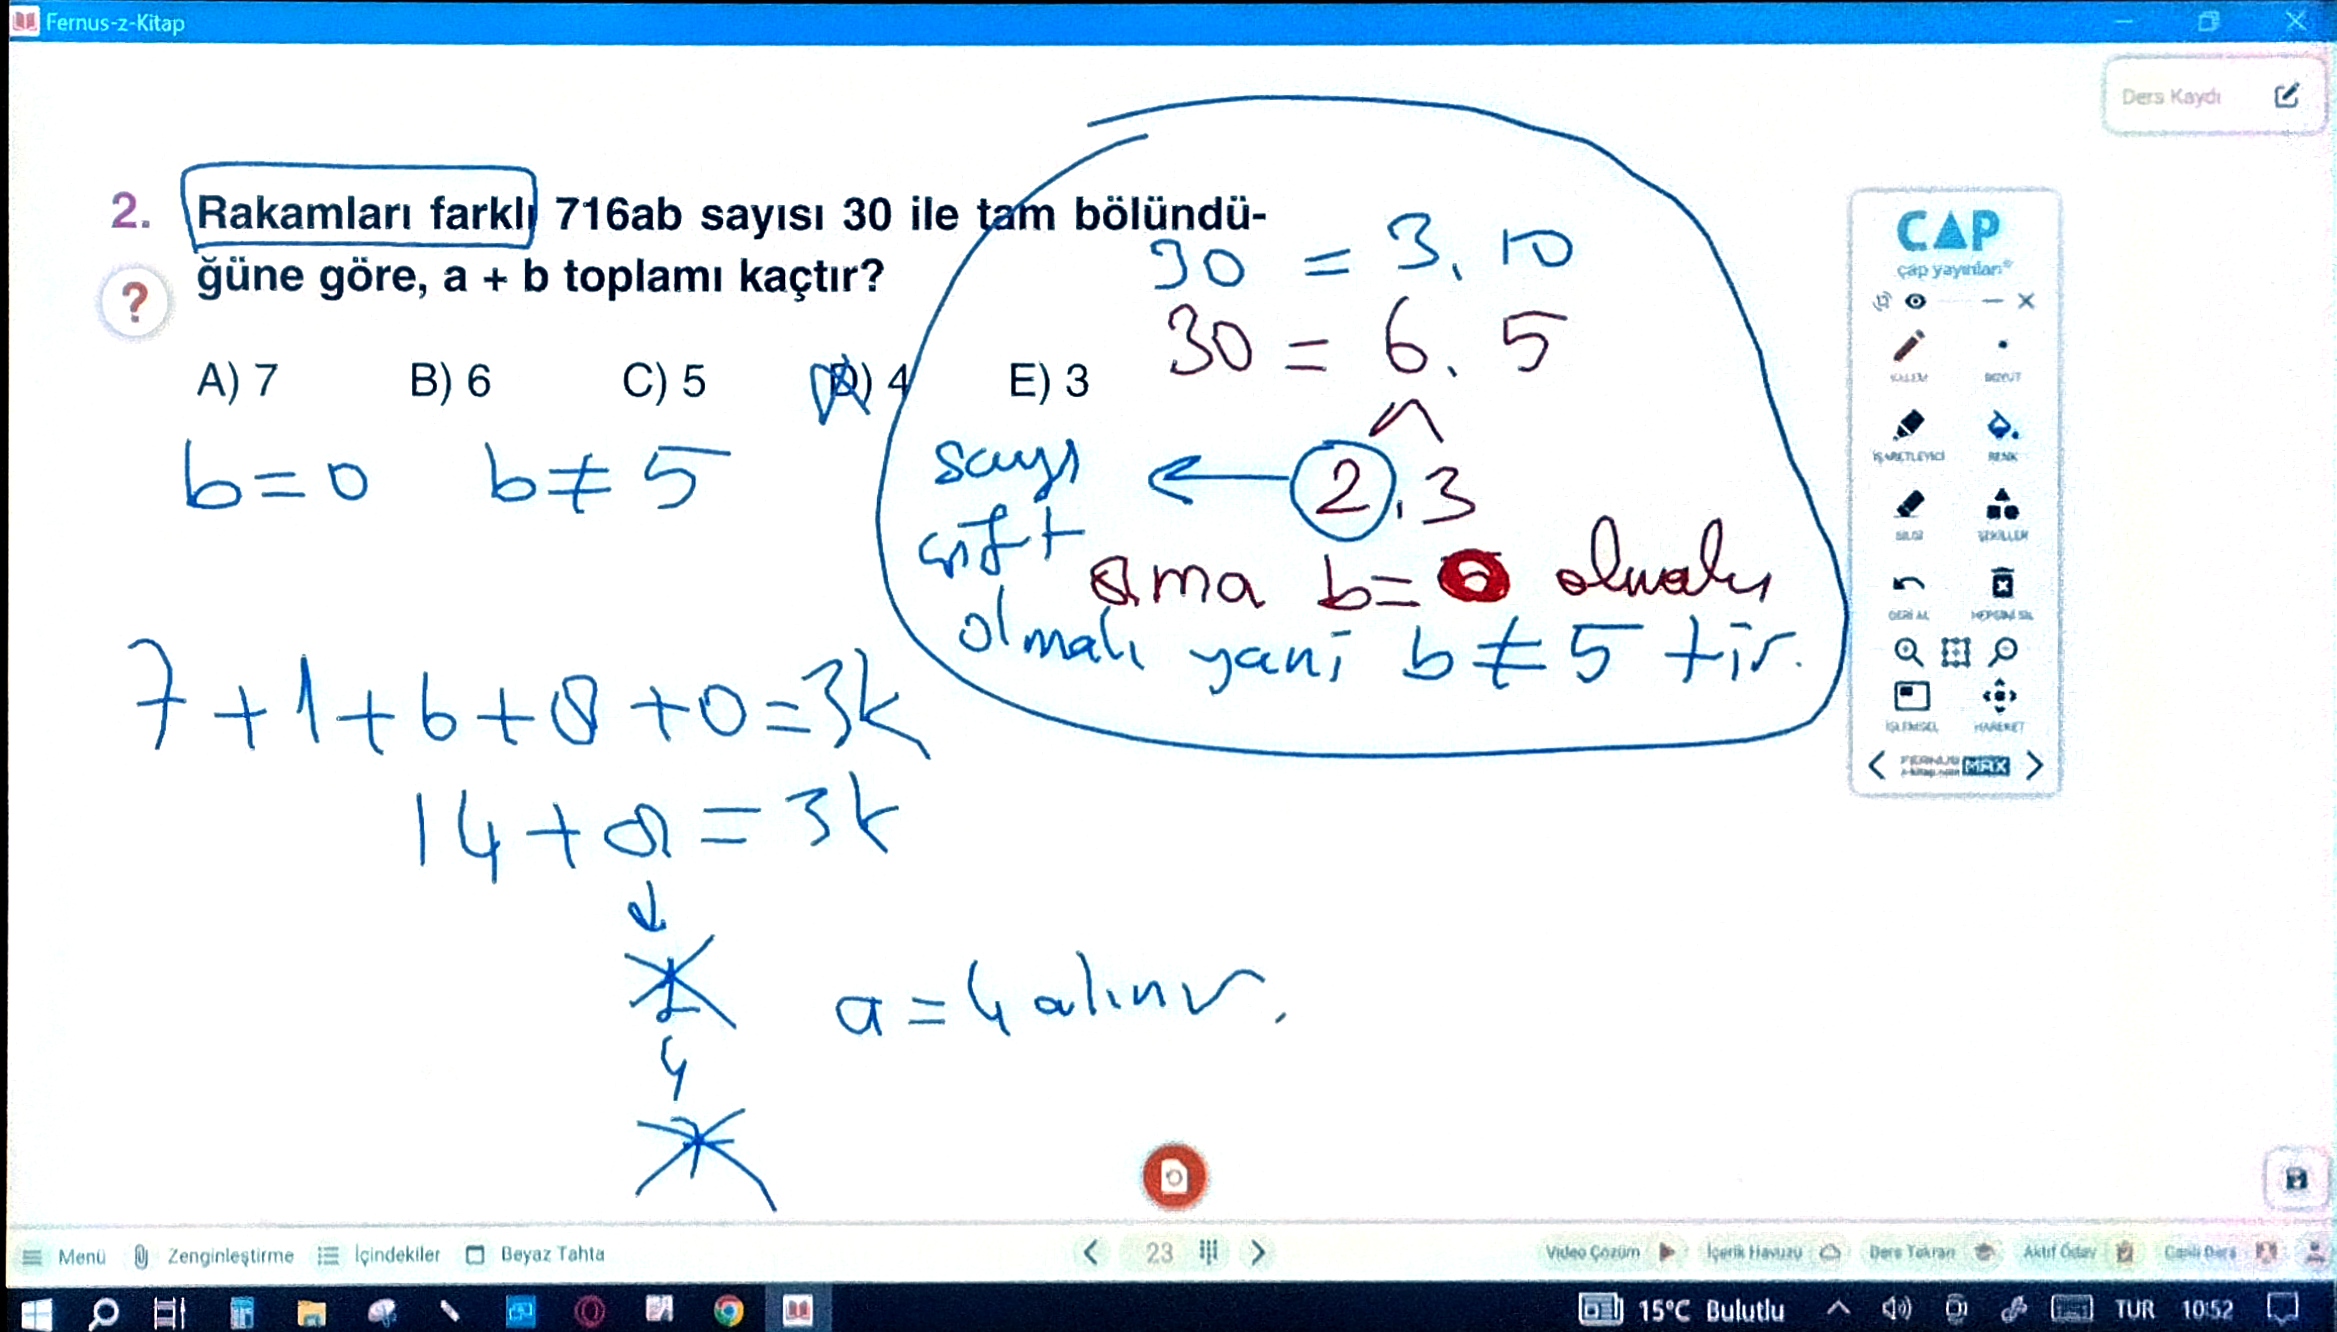 Fernus-z-Kitap
Ders Kaydı
2. Rakamları farklı 716ab sayısı 30 ile tam bölündü-
ğüne göre, a + b toplamı kaçtır?
?
A) 7 B) 6 C) 5 D) 4 E) 3
30 = 3.10
30 = 6.5
2.3
sayı
çift
olmalı yani b≠5 tir.
ama b=0 olmalı
b=0 b≠5
7+1+6+a+0=3k
14+a=3k
2
4
7
a=4 alınır.
CAP
çap yayınları
KALEM BOYUT
İŞARETLEYİCİ RENK
SİLGİ ŞEKİLLER
GERİ AL HEPSİNİ SİL
İŞLEMSEL HAREKET
FERNUS
z-kitap.com MAX
Menü Zenginleştirme İçindekiler Beyaz Tahta 23 Video Çözüm İçerik Havuzu Ders Tekrarı Aktif Ödev Canlı Ders
15°C Bulutlu TUR 10:52